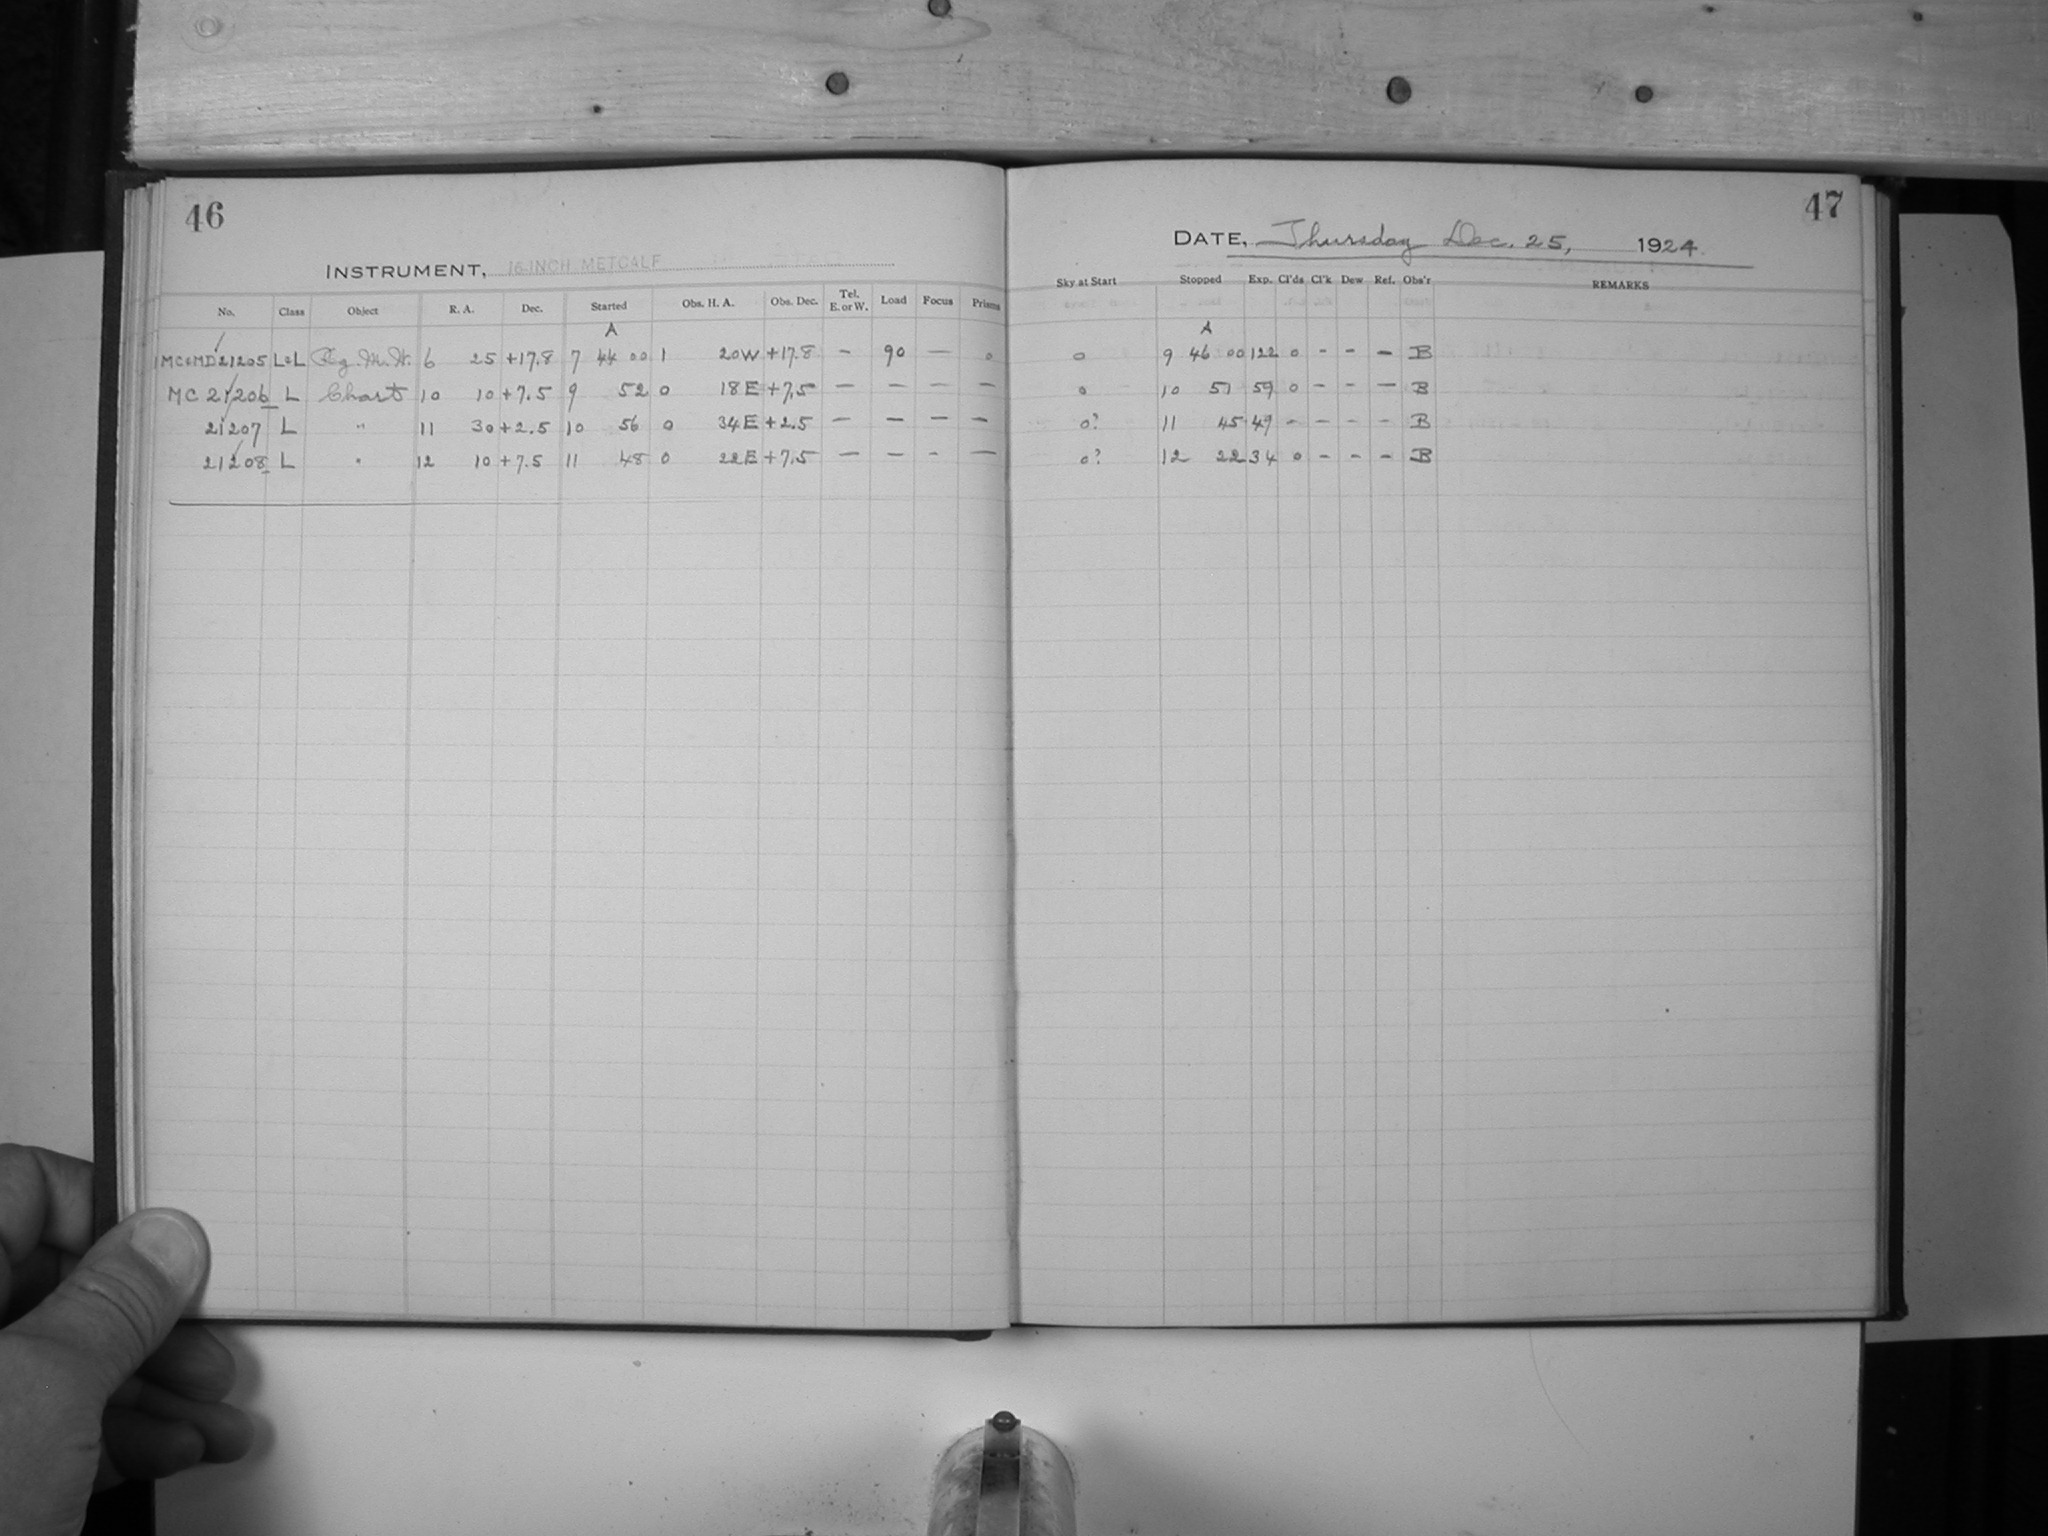 46
INSTRUMENT, 16-INCH METCALF
No. Class Object R. A. Dec. Started Obs. H. A. Obs. Dec. Tel. E. or W. Load Focus Prisms
A
MC&MD21205 L&L Rg. M.H. 6 25 +17.8 7 44 00 1 20W +17.8 - 90 — 0
MC 21206 L Chart 10 10 +7.5 9 52 0 18E +7.5 — — — —
21207 L " 11 30 +2.5 10 56 0 34E +2.5 — — — —
21208 L " 12 10 +7.5 11 48 0 22E +7.5 — — - —
47
DATE, Thursday Dec. 25, 1924.
Sky at Start Stopped Exp. Cl'ds Cl'k Dew Ref. Obs'r REMARKS
A
0 9 46 00 122 0 - - - B
0 10 51 59 0 - - - B
0? 11 45 49 - - - - B
0? 12 22 34 0 - - - B